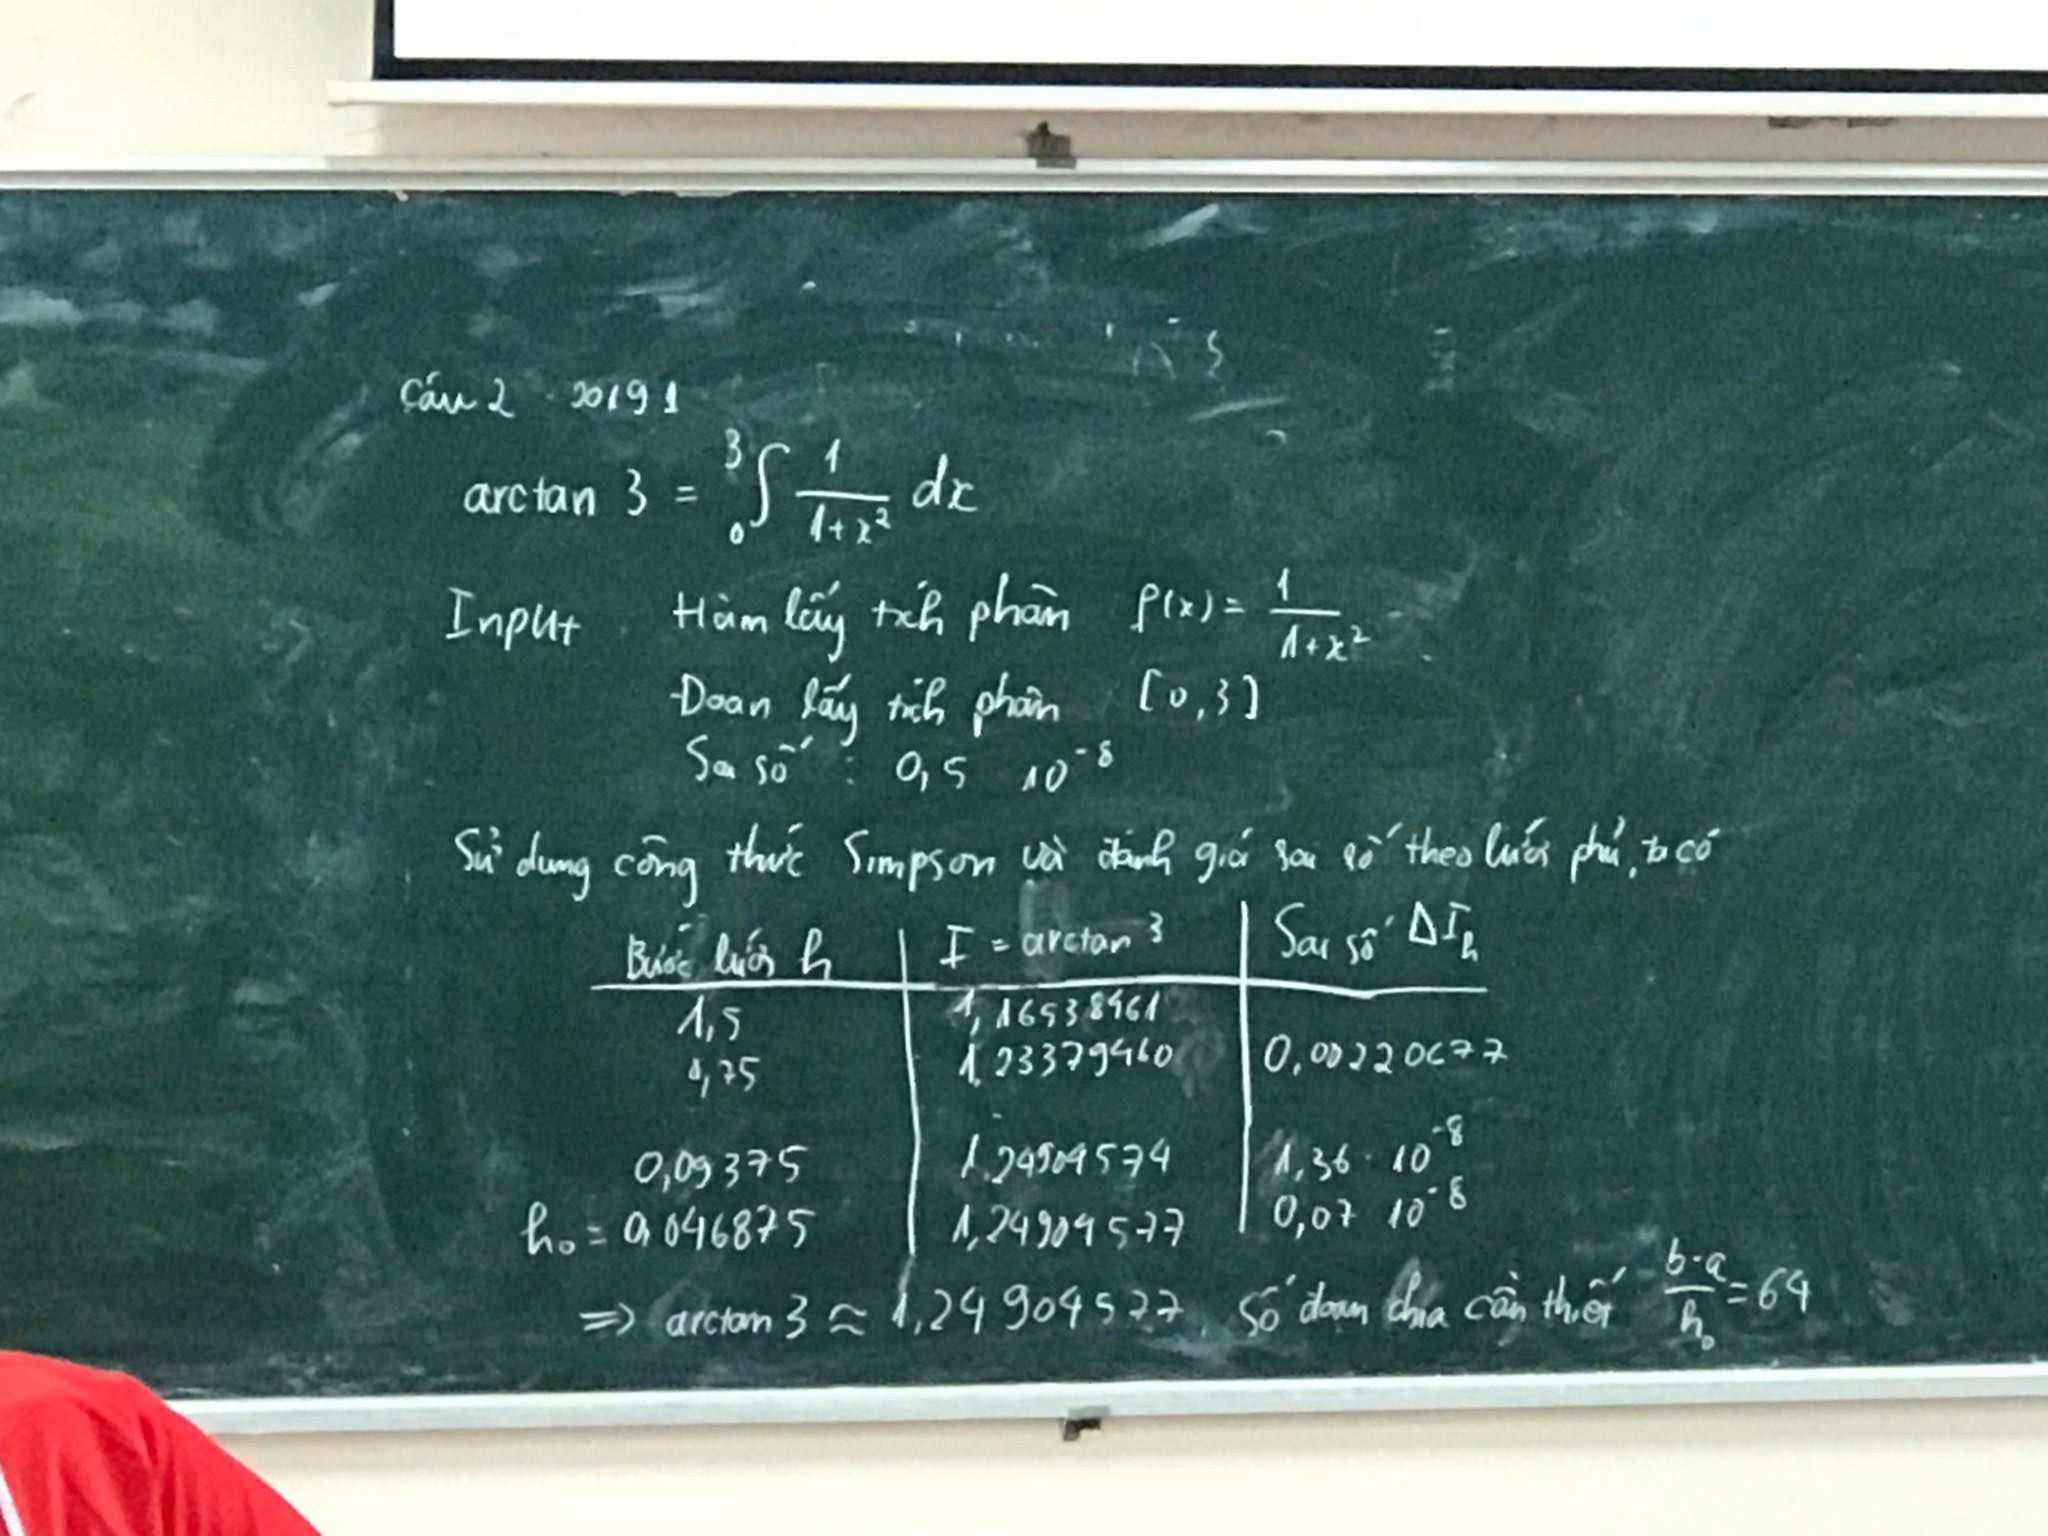 Câu 2 20191
arctan 3 = ₀³∫ 1/(1+x²) dx
Input Hàm lấy tích phân f(x) = 1/(1+x²)
Đoạn lấy tích phân [0,3]
Sai số : 0,5 10⁻⁸
Sử dụng công thức Simpson và đánh giá sai số theo lưới phủ, ta có
Bước lưới h | I = arctan 3 | Sai số ΔI_h
1,5 | 1,16538461
0,75 | 1,23379460 | 0,00220677
0,09375 | 1,24904574 | 1,36 · 10⁻⁸
h₀ = 0,046875 | 1,24904577 | 0,07 10⁻⁸
⇒ arctan 3 ≈ 1,24904577, số đoạn chia cần thiết (b-a)/h₀ = 64